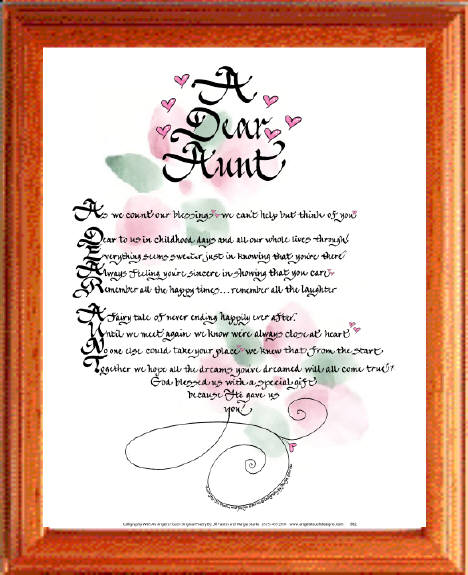 A
Dear
Aunt
As we count our blessings we can't help but think of you
Dear to us in childhood days and all our whole lives through
Everything seems sweeter just in knowing that you're there
Always feeling you're sincere in showing that you care
Remember all the happy times... remember all the laughter
A Fairy tale of never ending happily ever after.
Until we meet again we know we're always close at heart
No one else could take your place we knew that from the start
Together we hope all the dreams you've dreamed will all come true!
God blessed us with a special gift
because He gave us
you